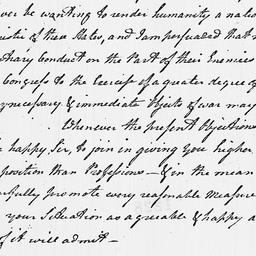 ver be wanting to render humanity a natio
istic of these States, and I am persuaded that n
trary Conduct on the Part of their Enemies
Congress to the Exercise of a greater degree of
necessary & immediate Objects of war may
Whenever the present Objections
happy Sir, to join in giving you higher
position than Professions — & in the mean
rfully promote every reasonable Measure
your Situation as agreeable & happy a
of it will admit —